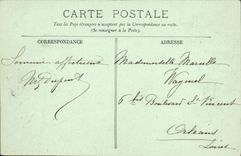 CARTE POSTALE
Tous les Pays étrangers n'acceptent pas la Correspondance au recto.
(Se renseigner à la Poste).
CORRESPONDANCE
ADRESSE
affectueux
Mademoiselle Marcelle
6 bis Boulevard St Vincent
Orléans
Loiret